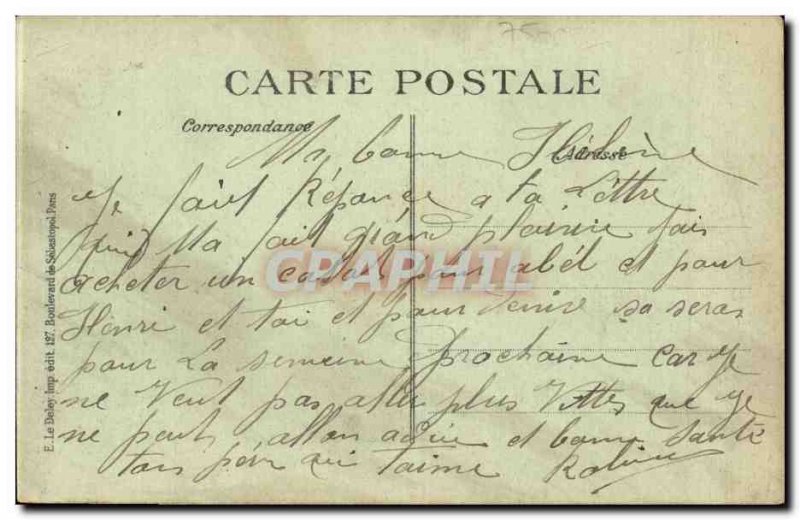 75
CARTE POSTALE
Correspondance
Adresse
Ma bonne Hélène
Je fait Réponce a ta Lettre
qui Ma fait grand plaisire
acheter un pour abél et pour
Hènri et toi et pour Denise sa seras
pour La semeine prochaine car Je
ne Veut pas allé plus Vittes que Je
ne peut allon adieu et bonne santé
ton père qui taime
E. Le Deley imp édit. 127, Boulevard de Sébastopol Paris
CARAPHIL